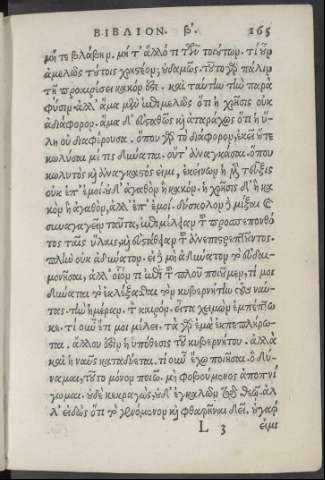 ΒΙΒΛΙΟΝ. β'. 165
μήτε βλάβην. μήτ' ἄλλό τι τῶν τοιούτων. τί οὖν
ἀμελῶς τούτοις χρηστέον; οὐδαμῶς. τοῦτο γὰρ πάλιν
τῇ προαιρέσει κακόν ἐστι. καὶ ταύτῃ τῇ παρὰ
φύσιν. ἀλλ' ἅμα μὲν ἐπιμελῶς ὅτι ἡ χρῆσις οὐκ
ἀδιάφορον. ἅμα δ' εὐσταθῶς καὶ ἀταράχως ὅτι ἡ ὕ-
λη οὐ διαφέρουσα. ὅπου γὰρ τὸ διαφέρον, ἐκεῖ οὔτε
κωλῦσαι με τις δύναται. οὔτ' ἀναγκάσαι. ὅπου
κωλυτὸς καὶ ἀναγκαστός εἰμι, ἐκείνων ἡ μὲν τεῦξις
οὐκ ἐπ' ἐμοὶ οὐδ' ἀγαθὸν ἢ κακόν. ἡ χρῆσις δ' ἢ κα-
κὸν ἢ ἀγαθὸν, ἀλλ' ἐπ' ἐμοί. δύσκολον δὲ μίξαι καὶ
συναγαγεῖν ταῦτα, ἐπιμέλειαν τοῦ προσπεπονθό-
τος ταῖς ὕλαις, καὶ εὐστάθειαν τοῦ ἀνεπιστρεπτοῦντος.
πλὴν οὐκ ἀδύνατον. εἰ δὲ μὴ ἀδύνατον τὸ εὐδαι-
μονῆσαι, ἀλλ' οἷον τι ἐπὶ τοῦ πλοῦ ποιοῦμεν, τί μοι
δύναται τὸ ἐκλέξασθαι τὸν κυβερνήτην τοὺς ναύ-
τας. τὴν ἡμέραν. τὸν καιρόν. εἶτα χειμὼν ἐμπέπτω-
κε. τί οὖν ἔτι μοι μέλει. τὰ γὰρ ἐμὰ ἐκπεπλήρω-
ται. ἄλλου ἐστὶν ἡ ὑπόθεσις τοῦ κυβερνήτου. ἀλλὰ
καὶ ἡ ναῦς καταδύεται. τί οὖν ἔχω ποιῆσαι ὃ δύ-
ναμαι, τοῦτο μόνον ποιῶ. μὴ φοβούμενος ἀποπνί-
γομαι. οὐδὲ κεκραγὼς, οὐδ' ἐγκαλῶν τῷ θεῷ. ἀλ-
λ' εἰδὼς ὅτι τὸ γενόμενον καὶ φθαρῆναι δεῖ. οὐ γάρ
L 3 εἰμι